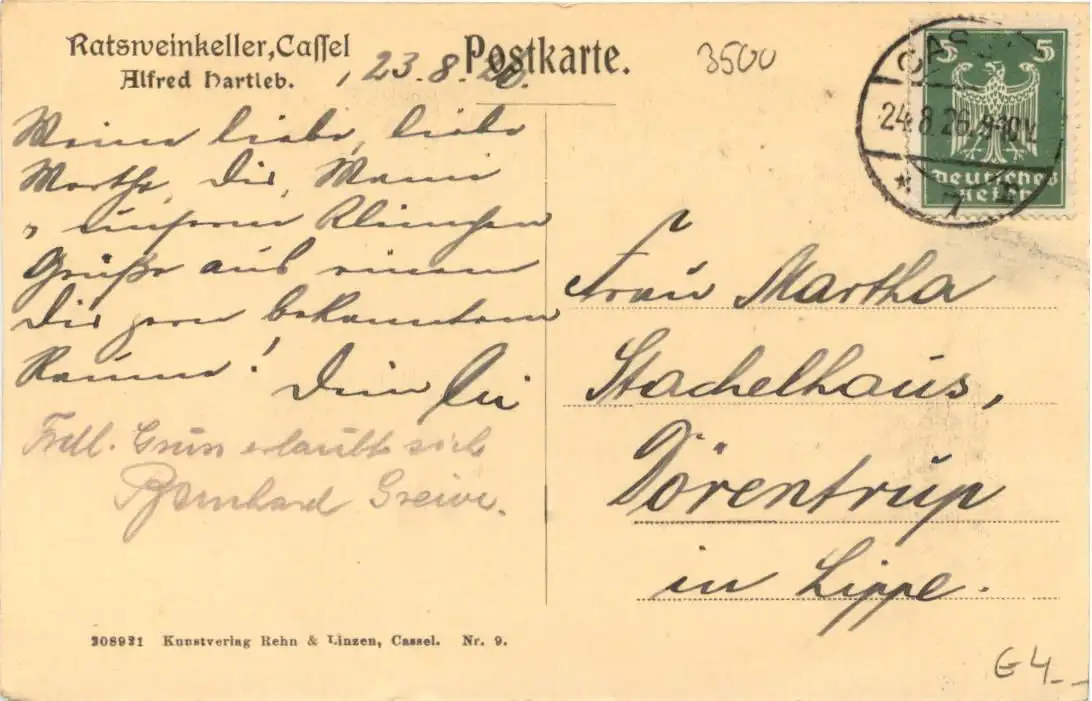 Ratsweinkeller, Cassel
Alfred Hartleb.
Postkarte.
, 23.8.26.
3500
CASSEL
24.8.26.9-10V.
* 7
5 5
Deutsches
Reich
Meine liebe, liebe
Marthe, Dir, Mami
unseren
Grüße aus einem
Dir gern bekannten
Raume! Dein
Frdl. Gruss erlaubt sich
Bernhard Greiwe.
Frau Martha
Stachelhaus,
Dörentrup
in Lippe.
208921 Kunstverlag Rehn & Linzen, Cassel. Nr. 9.
G 4.-